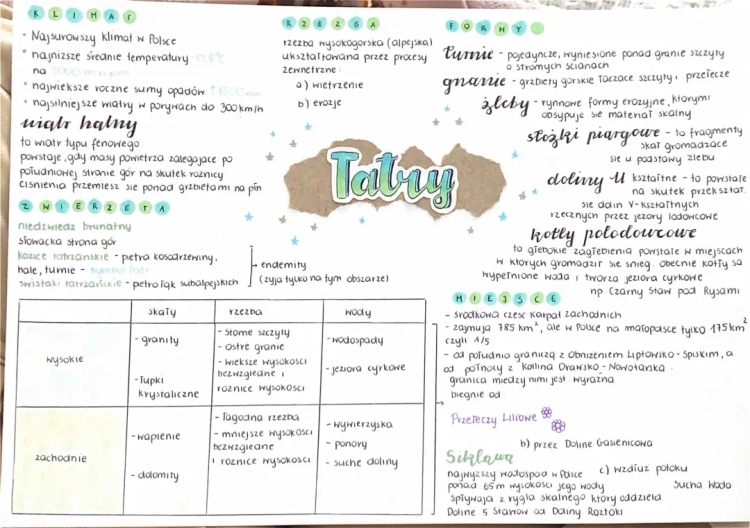 KLIMAT
• Najsurowszy klimat w Polsce
• najniższe średnie temperatury -0,8°C
na 2000 m n.p.m
• największe roczne sumy opadów
• najsilniejsze wiatry w porywach do 300 km/h
wiatr halny
to wiatr typu fenowego
powstaje, gdy masy powietrza zalegające po
południowej stronie gór na skutek różnicy
ciśnienia przemieszcz się ponad grzbietami na płn
ZWIERZĘTA
niedźwiedź brunatny
słowacka strona gór
kozice tatrzańskie - piętra kosodrzewiny,
hale, turnie - symbol Tatr
świstaki tatrzańskie - piętro łąk subalpejskich
endemity
(żyją tylko na tym obszarze)
RZEŹBA
rzeźba wysokogórska (alpejska)
ukształtowana przez procesy
zewnętrzne:
a) wietrzenie
b) erozję
Tatry
FORMY
turnie - pojedyncze, wyniesione ponad granie szczyty
o stromych ścianach
granie - grzbiety górskie łączące szczyty i przełęcze
żleby - rynnowe formy erozyjne, którymi
obsypuje się materiał skalny
stożki piargowe - to fragmenty
skał gromadzące
się u podstawy żlebu
doliny U kształtne - to powstałe
na skutek przekształ.
się dolin V-kształtnych
rzecznych przez jęzory lodowcowe
kotły polodowcowe
to głębokie zagłębienia powstałe w miejscach
w których gromadził się śnieg. obecnie kotły są
wypełnione wodą i tworzą jeziora cyrkowe
np Czarny Staw pod Rysami
MIEJSCE
- środkowa część Karpat Zachodnich
- zajmują 785 km², ale w Polsce na małopolsce tylko 175 km²
czyli 1/5
- od południa graniczą z Obniżeniem Liptowsko-Spiskim, a
od północy z Kotliną Orawsko-Nowotarską.
granica między nimi jest wyraźna
biegnie od:
Przełęczy Liliowe
b) przez Dolinę Gąsienicową
c) wzdłuż potoku
Sucha Woda
Siklawa
najwyższy wodospad w Polsce
ponad 65 m wysokości jego wody
spływają z rygla skalnego który oddziela
Dolinę 5 Stawów od Doliny Roztoki
skały rzeźba wody
wysokie
- granity
- łupki
krystaliczne
- strome szczyty
- ostre granie
- większe wysokości
bezwzględne i
różnice wysokości
- wodospady
- jeziora cyrkowe
zachodnie
- wapienie
- dolomity
- łagodna rzeźba
- mniejsze wysokości
bezwzględne
i różnice wysokości
- wywierzyska
- ponory
- suche doliny